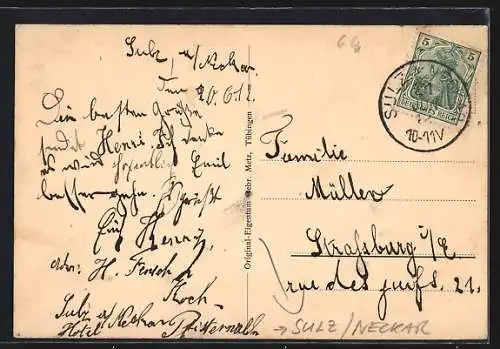 Sulz, a/Neckar.
den 20.6.12.
Die besten Grüße
sendet Henri. Ich denke
es wird hoffentlich Emil
besser gehn. Es grüßt
Euch Henri,
adr: H. Frosch
Koch
Sulz a/Neckar
Hotel
Original-Eigentum Gebr. Metz, Tübingen
5 5
DEUTSCHES REICH
SULZ
10-11V
Familie
Müller
Straßburg i/E
rue des juifs. 21.
→ SULZ/NECKAR